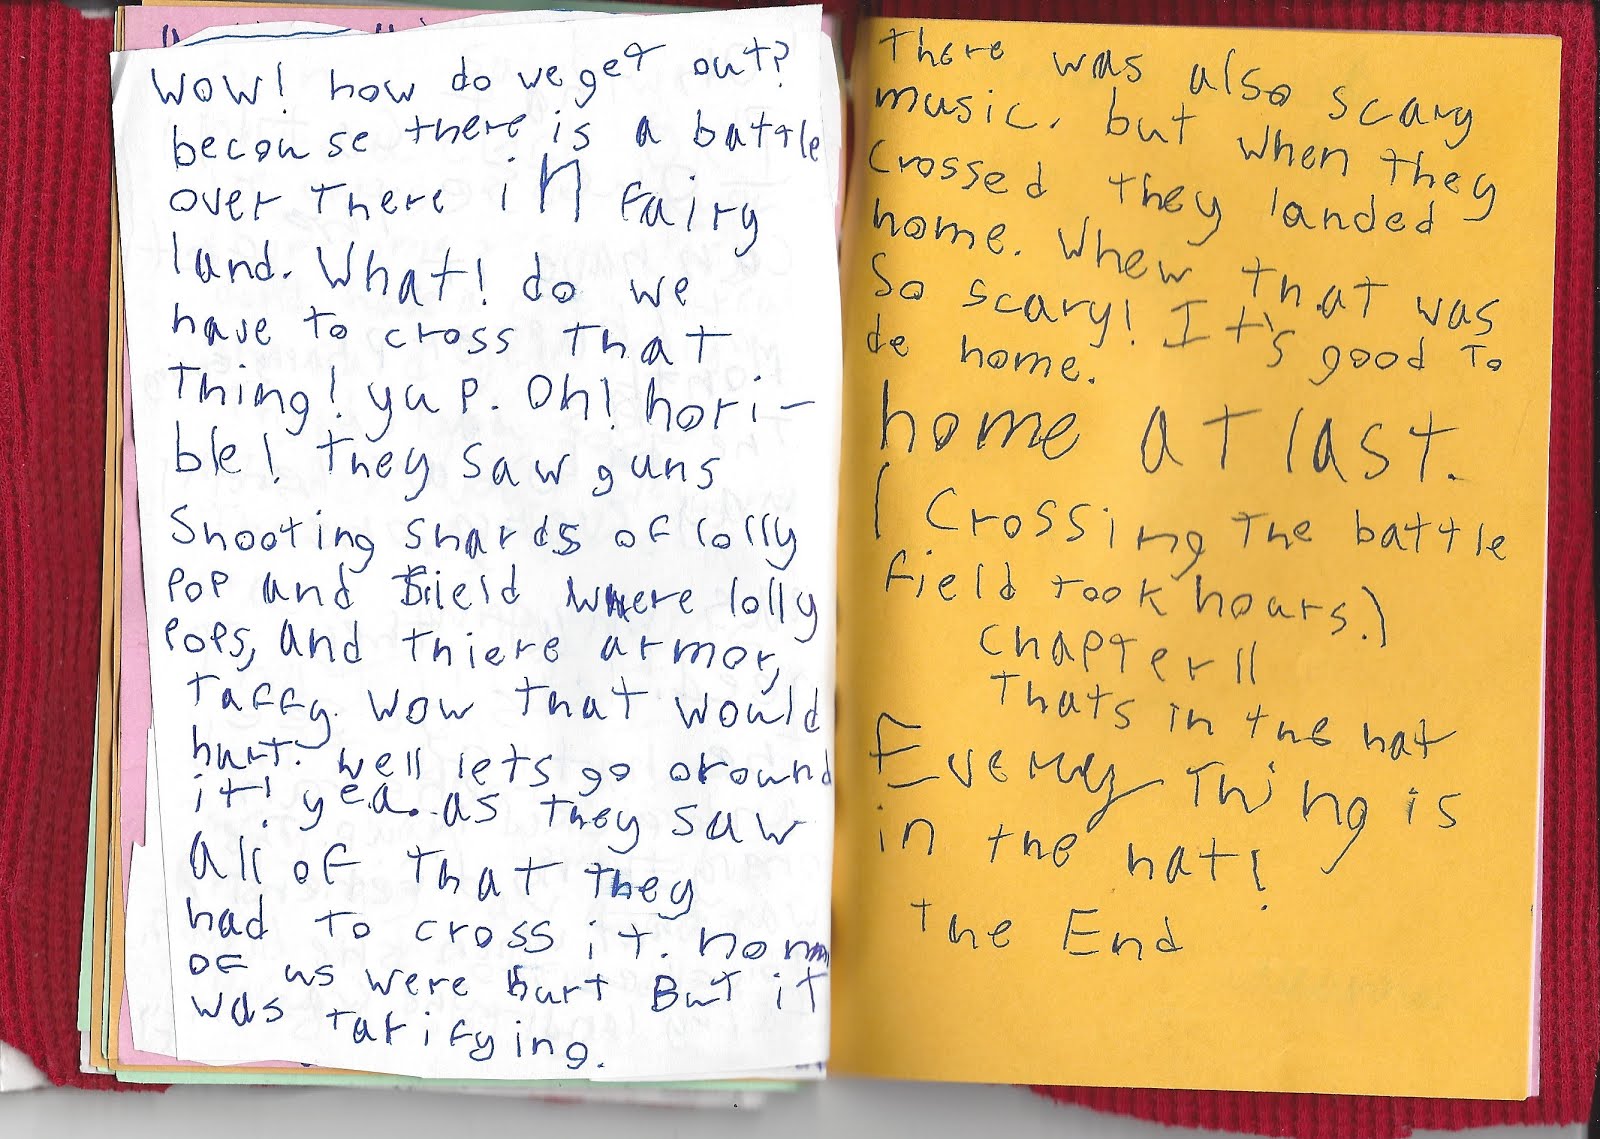 wow! how do we get out?
becouse there is a battle
over there in fairy
land. What! do we
have to cross that
thing! yup. Oh! hori-
ble! they saw guns
Shooting shards of lolly
pop and field where lolly
pops, and thiere armor,
taffy. wow that would
hurt. well lets go oround
it! yea. as they saw
all of that they
had to cross it. nonn
of us were hurt But it
was tarifying.
there was also scary
music. but when they
crossed they landed
home. Whew that was
So scary! It's good to
be home.
home at last.
(Crossing the battle
field took hours.)
Chapter 11
Thats in the hat
Every thing is
in the hat!
the End